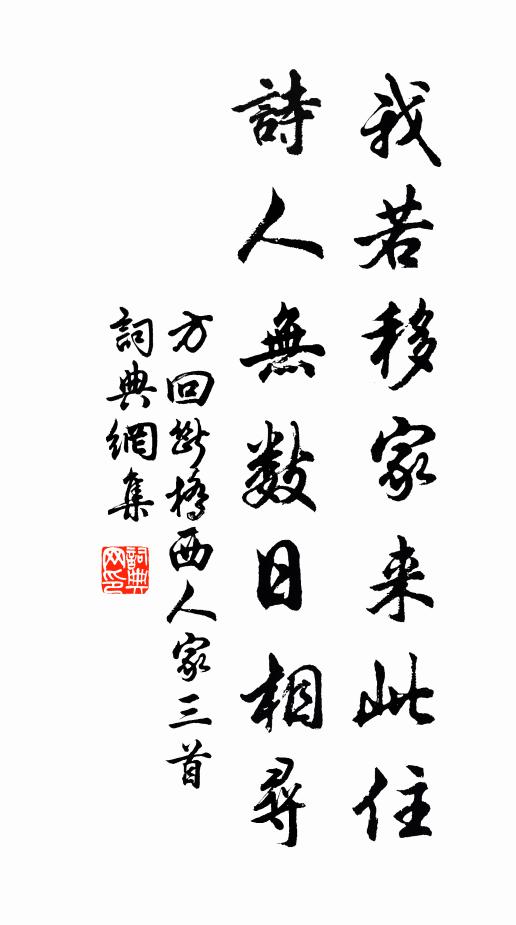 我若移家来此住
詩人無数日相尋
方回断橋西人家三首
詞典網集
詞典网印